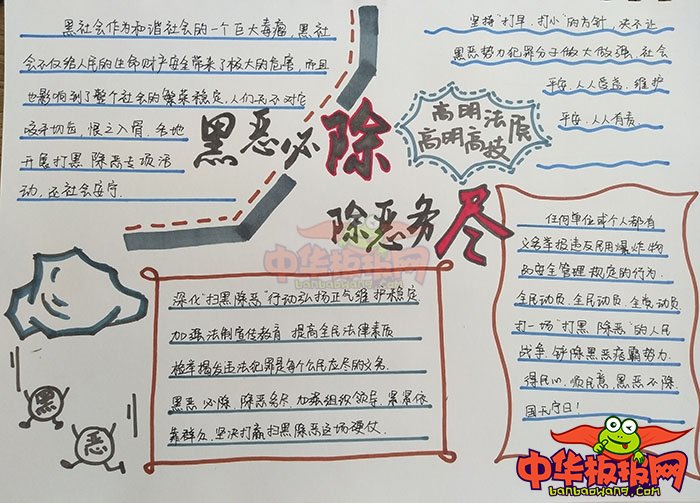 黑社会作为和谐社会的一个巨大毒瘤,黑社
会不仅给人民的生命财产安全带来了极大的危害,而且
也影响到了整个社会的繁荣稳定,人们无不对它
咬牙切齿,恨之入骨,各地
开展打黑除恶专项活
动,还社会安宁.
坚持“打早,打小”的方针,决不让
黑恶势力犯罪分子做大做强.社会
平安,人人受益,维护
平安,人人有责
黑恶必除
除恶务尽
高明法质
高明高技
任何单位或个人都有
义务举报违反民用爆炸物
品安全管理规定的行为.
全民动员,全民动员,全党动员
打一场“打黑除恶”的人民
战争,铲除黑恶痞霸势力.
得民心,顺民意,黑恶不除,
国无宁日!
深化“扫黑除恶”行动弘扬正气维护稳定
加强法制宣传教育 提高全民法律素质
检举揭发违法犯罪是每个公民应尽的义务.
黑恶必除,除恶务尽,加强组织领导,紧紧依
靠群众,坚决打赢扫黑除恶这场硬仗.
黑
恶
中华板报网
banbaowang.com
中华板报网
banbaowang.com